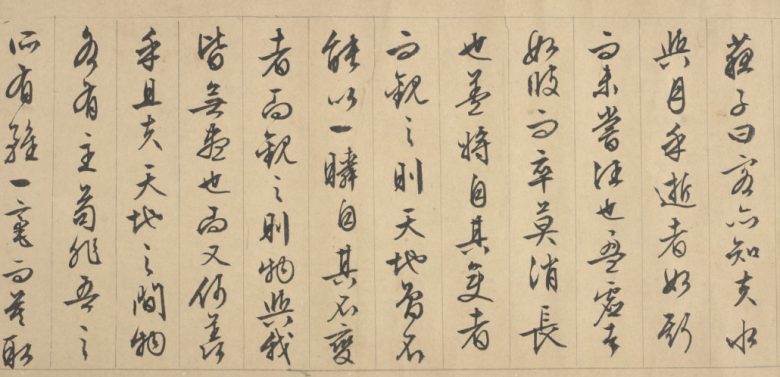 蘇子曰客亦知夫水
與月乎逝者如斯
而未嘗往也盈虛者
如彼而卒莫消長
也蓋將自其變者
而觀之則天地曾不
能以一瞬自其不變
者而觀之則物與我
皆無盡也而又何羨
乎且夫天地之間物
各有主苟非吾之
所有雖一毫而莫取